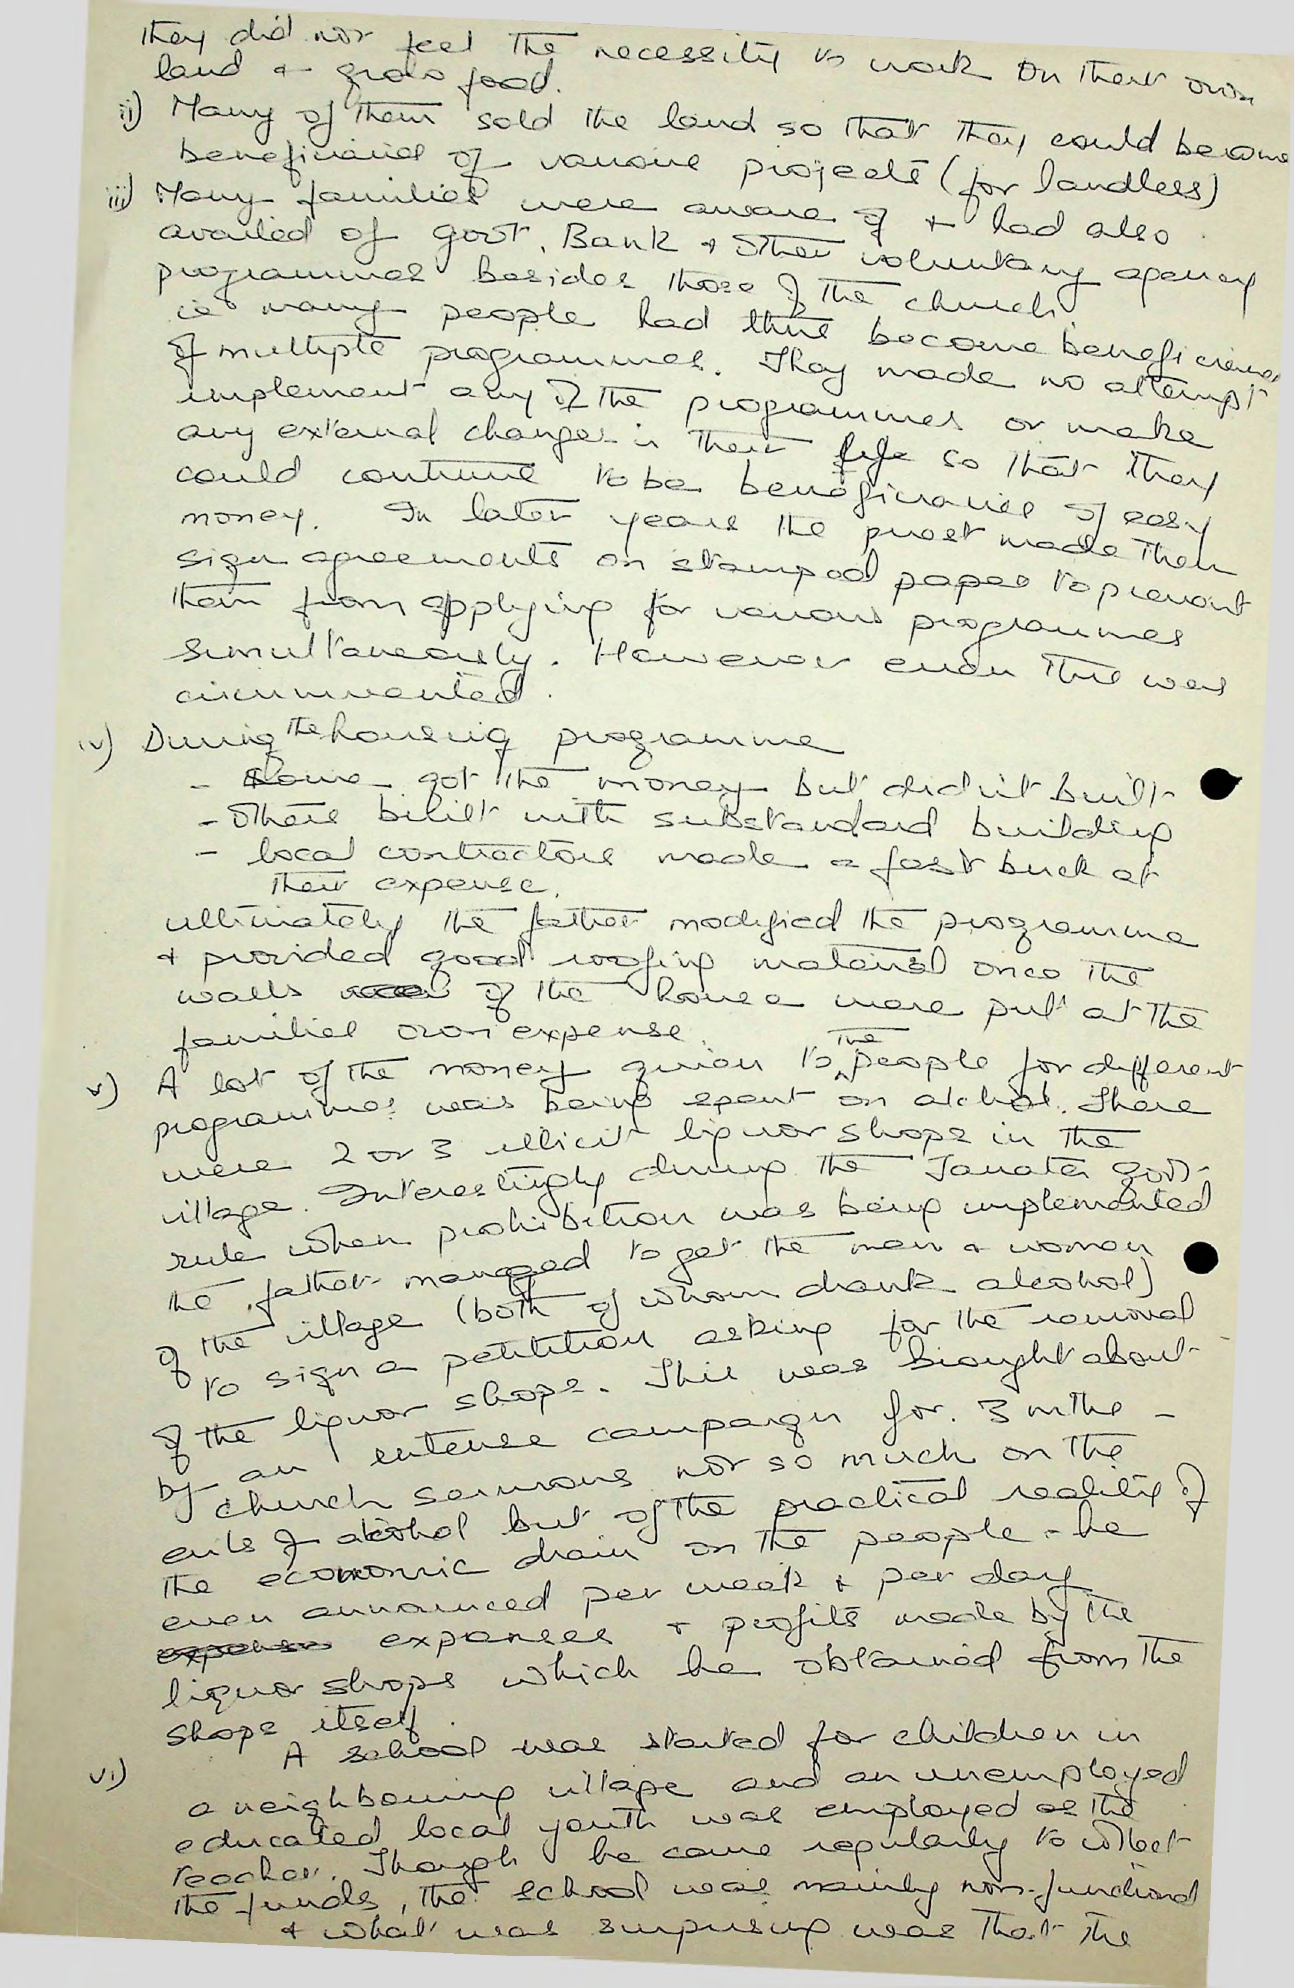 they did not feel the necessity to work on their own
land & grow food.
ii) Many of them sold the land so that they could become
beneficiaries of various projects (for landless)
iii) Many families were aware of & had also
availed of govt, Bank & other voluntary agency
programmes besides those of the church
ie many people had thus become beneficiaries
of multiple programmes. They made no attempt
implement any of the programmes or make
any external changes in their life so that they
could continue to be beneficiaries of easy
money. In later years the priest made them
sign agreements on stamped paper to prevent
them from applying for various programmes
simultaneously. However even this was
circumvented.
iv) During the housing programme
- Some got the money but didn't built
- Others built with substandard building
- local contractors made a fast buck at
their expense.
ultimately the father modified the programme
& provided good roofing material once the
walls of the house were put at the
families own expense.
v) A lot of the money given to the people for different
programmes was being spent on alchol. There
were 2 or 3 illicit liquor shops in the
village. Interestingly during the Janata govt
rule when prohibition was being implemented
the father managed to get the men & women
of the village (both of whom drank alcohol)
to sign a petitition asking for the removal
of the liquor shops. This was brought about
by an intense campaign for 3 mths -
church sermons not so much on the
evils of alcohol but of the practical reality of
the economic drain on the people - he
even announced per week & per day
expenses & profits made by the
liquor shops which he obtained from the
shops itself.
vi) A school was started for children in
a neighbouring village and an unemployed
educated local youth was employed as the
teacher. Though he came regularly to collect
the funds, the school was mainly non-functional
& what was surprising was that the